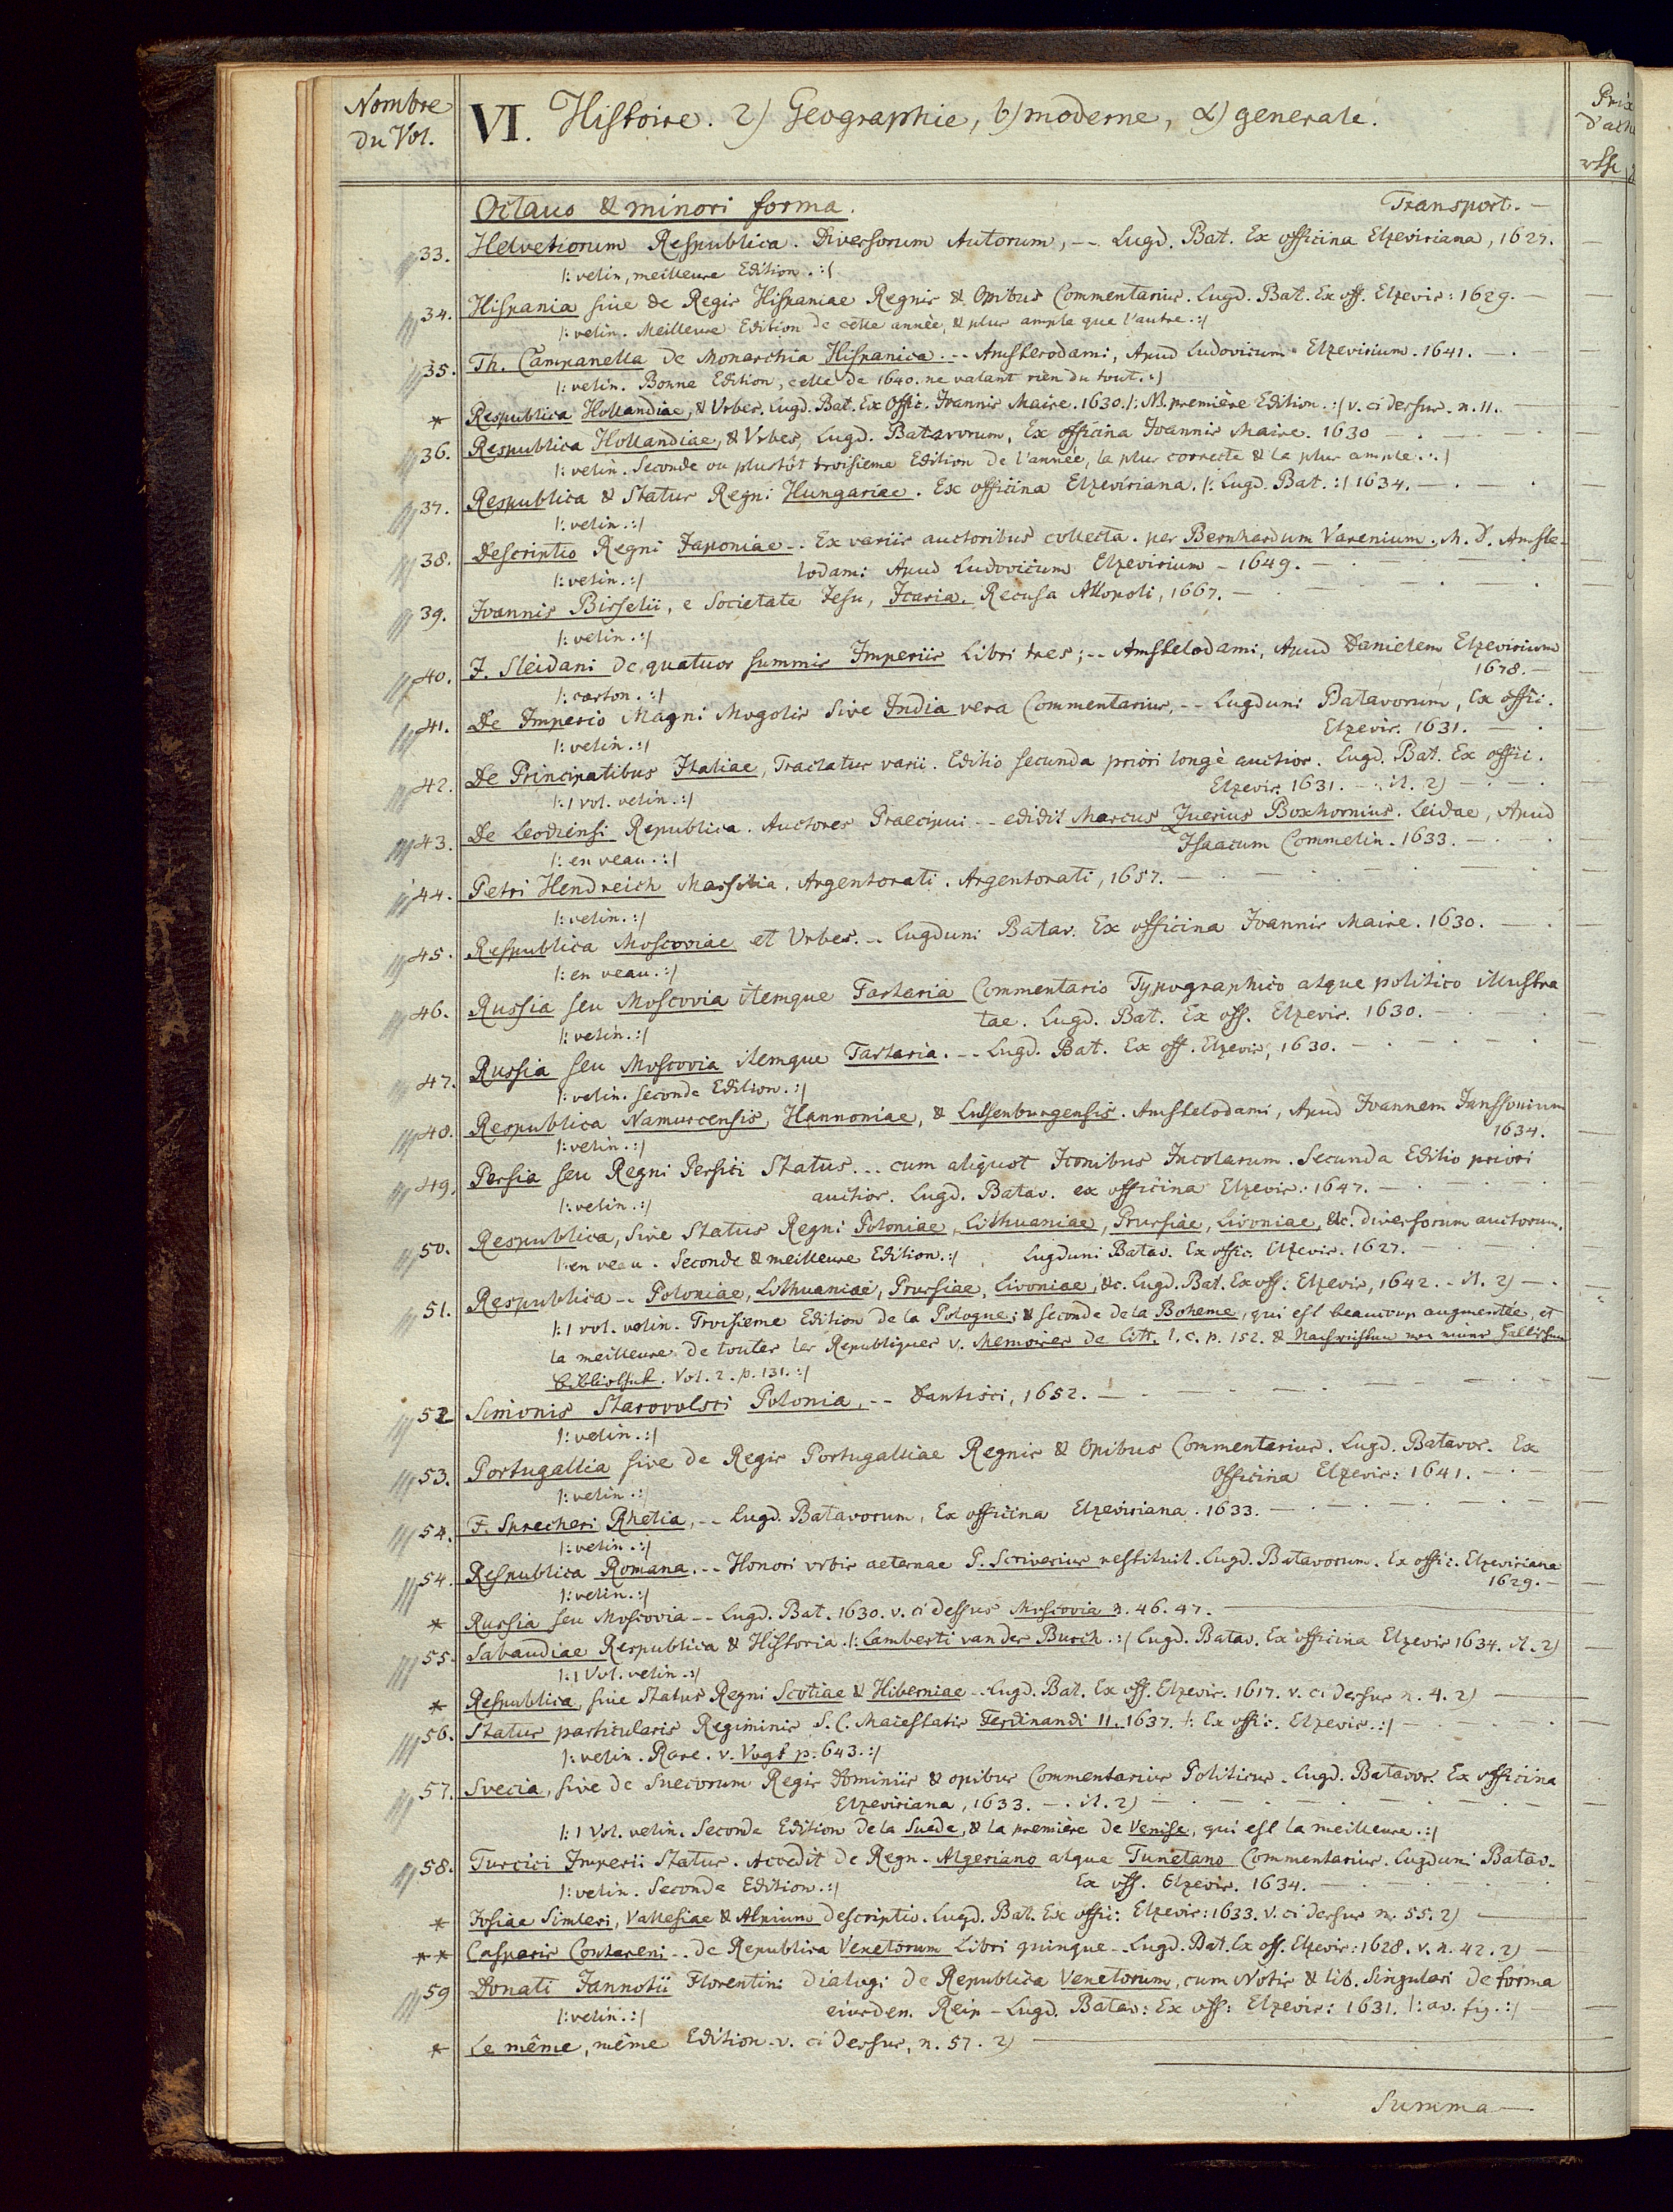 Nombre
du Vol.
VI. Histoire. 2) Geographie, b) moderne, α) generale.
Prix
Octavo & minori forma. Transport. —
33. Helvetiorum Respublica. Diversorum Autorum, -- Lugd. Bat. Ex officina Elzeviriana, 1627.
|: velin, meilleure Edition. :|
34. Hispania sive de Regis Hispaniae Regnis & Opibus Commentarius. Lugd. Bat. Ex off. Elzevir: 1629. —
|: velin. Meilleure Edition de cette année, & plus ample que l'autre. :|
35. Th. Campanella de Monarchia Hispanica. -- Amsterodami, Apud Ludovicum Elzevirium. 1641. —
|: velin. Bonne Edition, celle de 1640. ne valant rien du tout. :|
* Respublica Hollandiae, & Urbes. Lugd. Bat. Ex Offic. Ioannis Maire. 1630. |: NB. première Edition. :| v. ci dessus. n. 11.
36. Respublica Hollandiae, & Urbes, Lugd. Batavorum, Ex officina Ioannis Maire. 1630 —
|: velin. Seconde ou plustôt troisieme Edition de l'année, la plus correcte & la plus ample. :|
37. Respublica & Status Regni Hungariae. Ex officina Elzeviriana. |: Lugd. Bat. :| 1634. —
|: velin. :|
38. Descriptio Regni Japoniae -- Ex variis auctoribus collecta. per Bernhardum Varenium. M. D. Amste-
lodami Apud Ludovicum Elzevirium - 1649. —
|: velin. :|
39. Ioannis Bisselii, e Societate Jesu, Icaria. Recusa Allopoli, 1667. —
|: velin. :|
40. J. Sleidani de quatuor summis Imperiis Libri tres; -- Amstelodami, Apud Danielem Elzevirium
1678. —
|: carton. :|
41. De Imperio Magni Mogolis sive India vera Commentarius, -- Lugduni Batavorum, Ex offic.
Elzevir. 1631. —
|: velin. :|
42. De Principatibus Italiae, Tractatus varii. Editio secunda priori longè auctior. Lugd. Bat. Ex offic.
Elzevir. 1631. — . it. 2) —
|: 1 vol. velin. :|
43. De Leodiensi Republica. Auctores Praecipui -- edidit Marcus Zuerius Boxhornius. Leidae, Apud
Isaacum Commelin. 1633. —
|: en veau. :|
44. Petri Hendreich Massilia. Argentorati. Argentorati, 1657. —
|: velin. :|
45. Respublica Moscoviae et Urbes. -- Lugduni Batav. Ex officina Ioannis Maire. 1630. —
|: en veau. :|
46. Russia seu Moscovia itemque Tartaria Commentario Typographico atque politico illustra
tae. Lugd. Bat. Ex off. Elzevir. 1630. —
|: velin. :|
47. Russia seu Moscovia itemque Tartaria. -- Lugd. Bat. Ex off. Elzevir, 1630. —
|: velin. seconde Edition. :|
48. Respublica Namurcensis, Hannoniae, & Lutsenburgensis. Amstelodami, Apud Ioannem Janssonium
1634.
|: velin. :|
49. Persia seu Regni Persici Status... cum aliquot Iconibus Incolarum. Secunda Editio priori
auctior. Lugd. Batav. ex officina Elzevir: 1647. —
|: velin. :|
50. Respublica, sive Status Regni Poloniae, Lithuaniae, Prussiae, Livoniae, &c. diversorum auctorum.
|: en veau. Seconde & meilleure Edition. :| Lugduni Batav. Ex offic. Elzevir. 1627. —
51. Respublica -- Poloniae, Lithuaniae, Prussiae, Livoniae, &c. Lugd. Bat. Ex off. Elzevir, 1642. - it. 2) —
|: 1 vol. velin. Troisieme Edition de la Pologne; & seconde de la Boheme, qui est beaucoup augmentée, et
la meilleure de toutes les Republiques v. Memoires de Litt. l. c. p. 152. & Nachrichten von einer Hallischen
Bibliothek. Vol. 2. p. 131. :|
52 Simonis Starovolsci Polonia, -- Dantisci, 1652. —
|: velin. :|
53. Portugallia sive de Regis Portugalliae Regnis & Opibus Commentarius. Lugd. Batavor. Ex
Officina Elzevir: 1641. —
|: velin. :|
54. F. Sprecheri Rhetia, -- Lugd. Batavorum, Ex officina Elzeviriana. 1633. —
|: velin. :|
54. Respublica Romana. -- Honori urbis aeternae P. Scriverius restituit. Lugd. Batavorum. Ex offic. Elzeviriana
1629. —
|: velin. :|
* Russia seu Moscovia -- Lugd. Bat. 1630. v. ci dessus Moscovia n. 46. 47. —
55. Sabaudiae Respublica & Historia. |: Lamberti van der Burch. :| Lugd. Batav. Ex officina Elzevir 1634. it. 2)
|: 1 Vol. velin. :|
* Respublica, sive Status Regni Scotiae & Hiberniae - Lugd. Bat. Ex off. Elzevir. 1617. v. ci dessus n. 4. 2) —
56. Status particularis Regiminis S. C. Maiestatis Ferdinandi II. 1637. |: Ex offic. Elzevir. :| —
|: velin. Rare. v. Vogt p. 643. :|
57. Svecia, sive de Suecorum Regis Dominiis & opibus Commentarius Politicus. Lugd. Batavor. Ex officina
Elzeviriana, 1633. — . it. 2) —
|: 1 Vol. velin. Seconde Edition de la Suede, & la première de Venise, qui est la meilleure. :|
58. Turcici Imperii Status. Accedit de Regn. Algeriano atque Tunetano Commentarius. Lugduni Batav.
Ex off. Elzevir. 1634. —
|: velin. Seconde Edition. :|
* Josiae Simleri, Vallesiae & Alpium descriptio. Lugd. Bat. Ex offic: Elzevir: 1633. v. ci dessus n. 55. 2) —
** Casparis Contareni -- de Republica Venetorum Libri quinque - Lugd. Bat. Ex off. Elzevir: 1628. v. n. 42. 2) —
59 Donati Jannotii Florentini dialogi de Republica Venetorum, cum Notis & lib. singulari de forma
eiusden. Reip - Lugd. Batav: Ex off: Elzevir: 1631. |: av. fig. :| —
|: velin. :|
* Le même, même Edition. v. ci dessus, n. 57. 2) —
Summa —